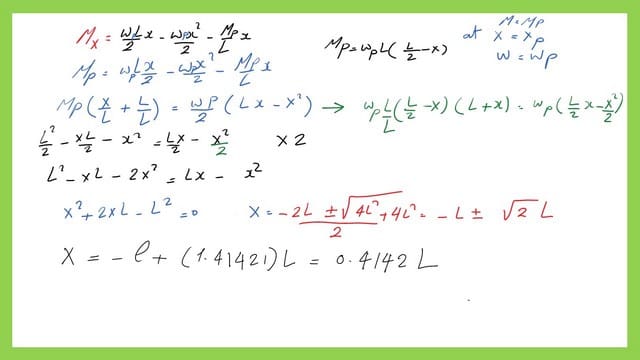 Mx = wpL/2 x - wpx²/2 - Mp/L x
Mp = wpL(L/2 - x)
at M = Mp
x = xp
w = wp
Mp = wp Lx/2 - wpx²/2 - Mp/L x
Mp(x/L + L/L) = wp/2 (Lx - x²) → wp L/L (L/2 - x)(L + x) = wp(L/2 x - x²/2)
L²/2 - xL/2 - x² = Lx/2 - x²/2 x 2
L² - xL - 2x² = Lx - x²
x² + 2xL - L² = 0 x = -2L ± √4L² + 4L² / 2 = -L ± √2 L
X = - l + (1.41421) L = 0.4142 L